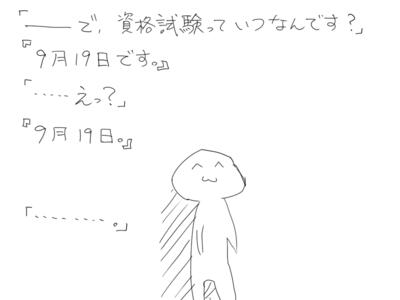 「――で，資格試験っていつなんです？」
『9月19日です。』
「……えっ？」
『9月19日。』
「………。」